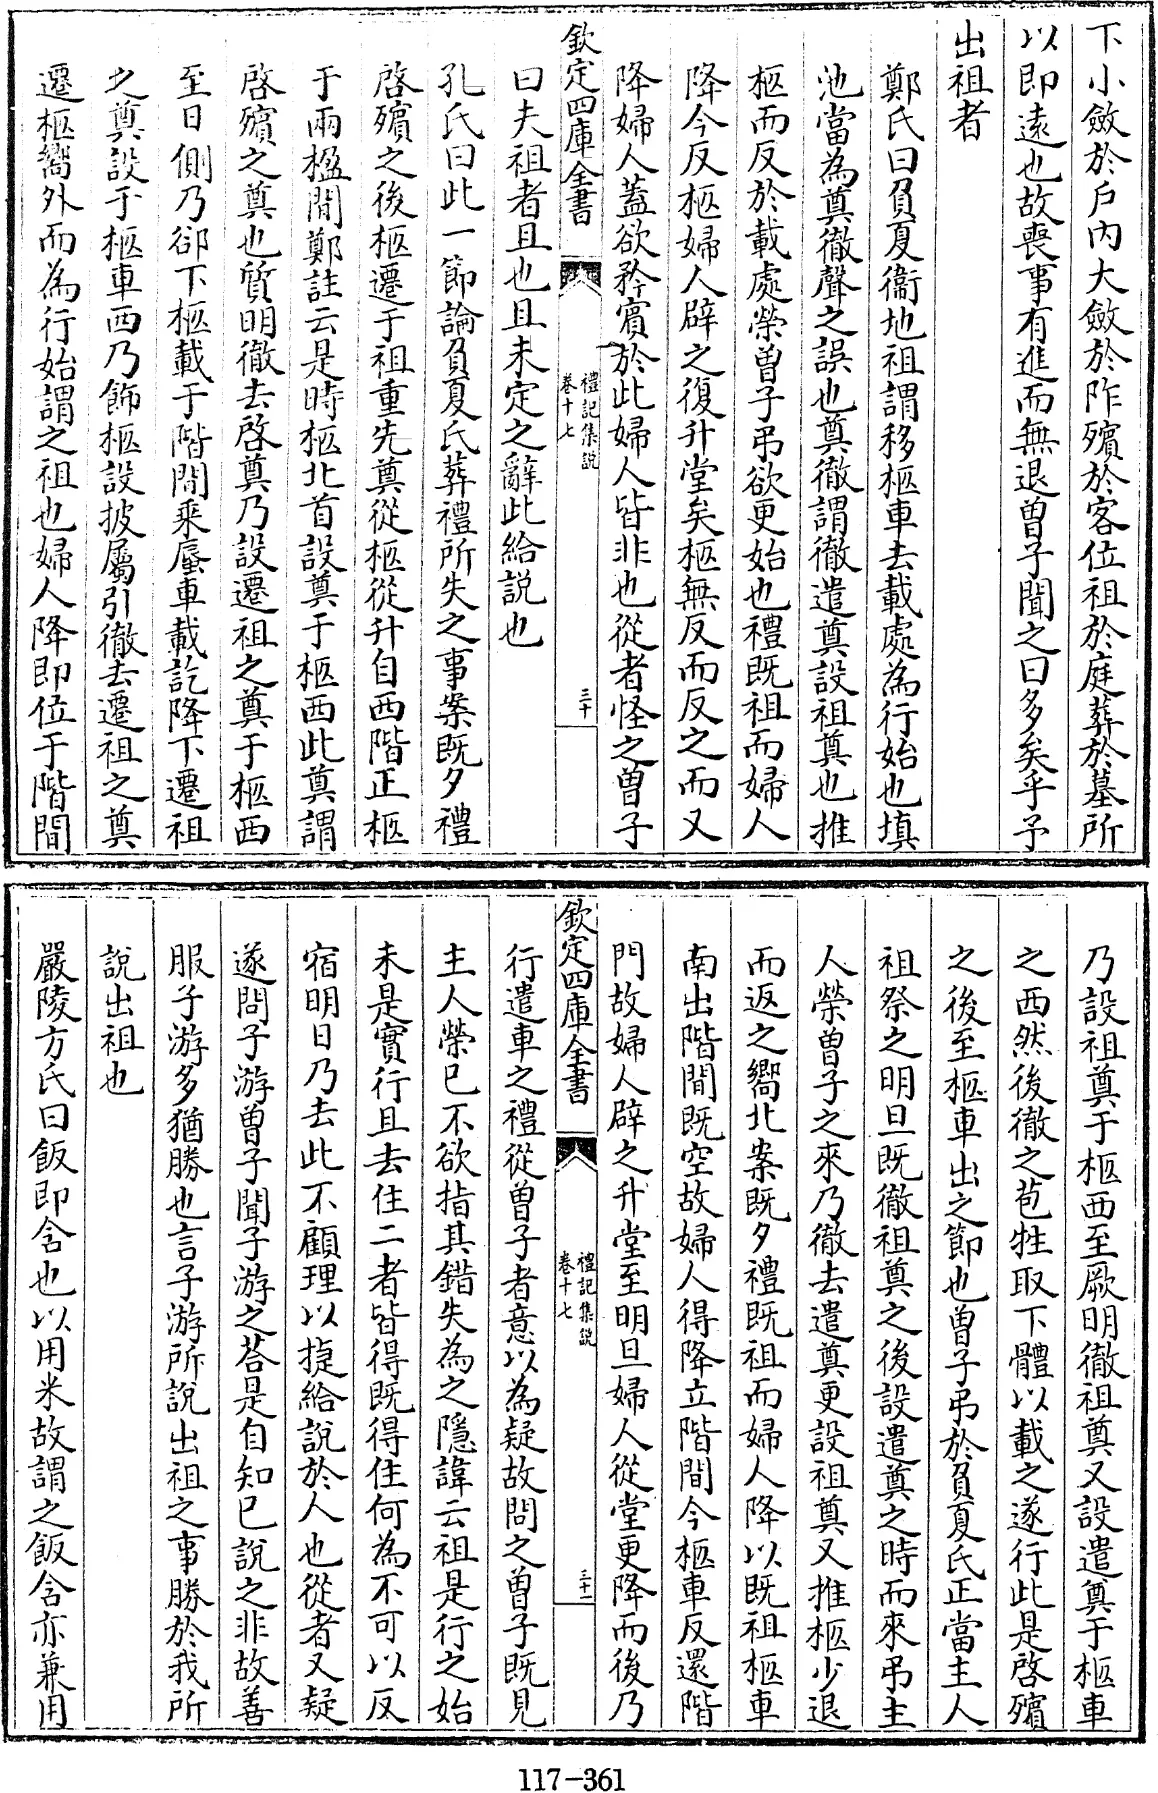 下小斂於戶內大斂於阼殯於客位祖於庭葬於墓所
以即遠也故喪事有進而無退曽子聞之曰多矣乎予
出祖者
鄭氏曰負夏衞地祖謂移柩車去載處為行始也填
池當為奠徹聲之誤也奠徹謂徹遣奠設祖奠也推
柩而反於載處榮曽子弔欲更始也禮既祖而婦人
降今反柩婦人辟之復升堂矣柩無反而反之而又
降婦人蓋欲矜賓於此婦人皆非也從者怪之曽子
欽定四庫全書
禮記集說
卷十七
三十
曰夫祖者且也且未定之辭此給說也
孔氏曰此一節論負夏氏葬禮所失之事案既夕禮
啓殯之後柩遷于祖重先奠從柩從升自西階正柩
于兩楹間鄭註云是時柩北首設奠于柩西此奠謂
啓殯之奠也質明徹去啓奠乃設遷祖之奠于柩西
至日側乃郤下柩載于階間乘蜃車載訖降下遷祖
之奠設于柩車西乃飾柩設披屬引徹去遷祖之奠
遷柩嚮外而為行始謂之祖也婦人降即位于階間
乃設祖奠于柩西至厥明徹祖奠又設遣奠于柩車
之西然後徹之苞牲取下體以載之遂行此是啓殯
之後至柩車出之節也曽子弔於負夏氏正當主人
祖祭之明旦既徹祖奠之後設遣奠之時而來弔主
人榮曽子之來乃徹去遣奠更設祖奠又推柩少退
而返之嚮北案既夕禮既祖而婦人降以既祖柩車
南出階間既空故婦人得降立階間今柩車反還階
門故婦人辟之升堂至明旦婦人從堂更降而後乃
欽定四庫全書
禮記集說
卷十七
三十一
行遣車之禮從曽子者意以為疑故問之曽子既見
主人榮已不欲指其錯失為之隱諱云祖是行之始
未是實行且去住二者皆得既得住何為不可以反
宿明日乃去此不顧理以捷給說於人也從者又疑
遂問子游曽子聞子游之荅是自知已說之非故善
服子游多猶勝也言子游所說出祖之事勝於我所
說出祖也
嚴陵方氏曰飯即含也以用米故謂之飯含亦兼用
117-361